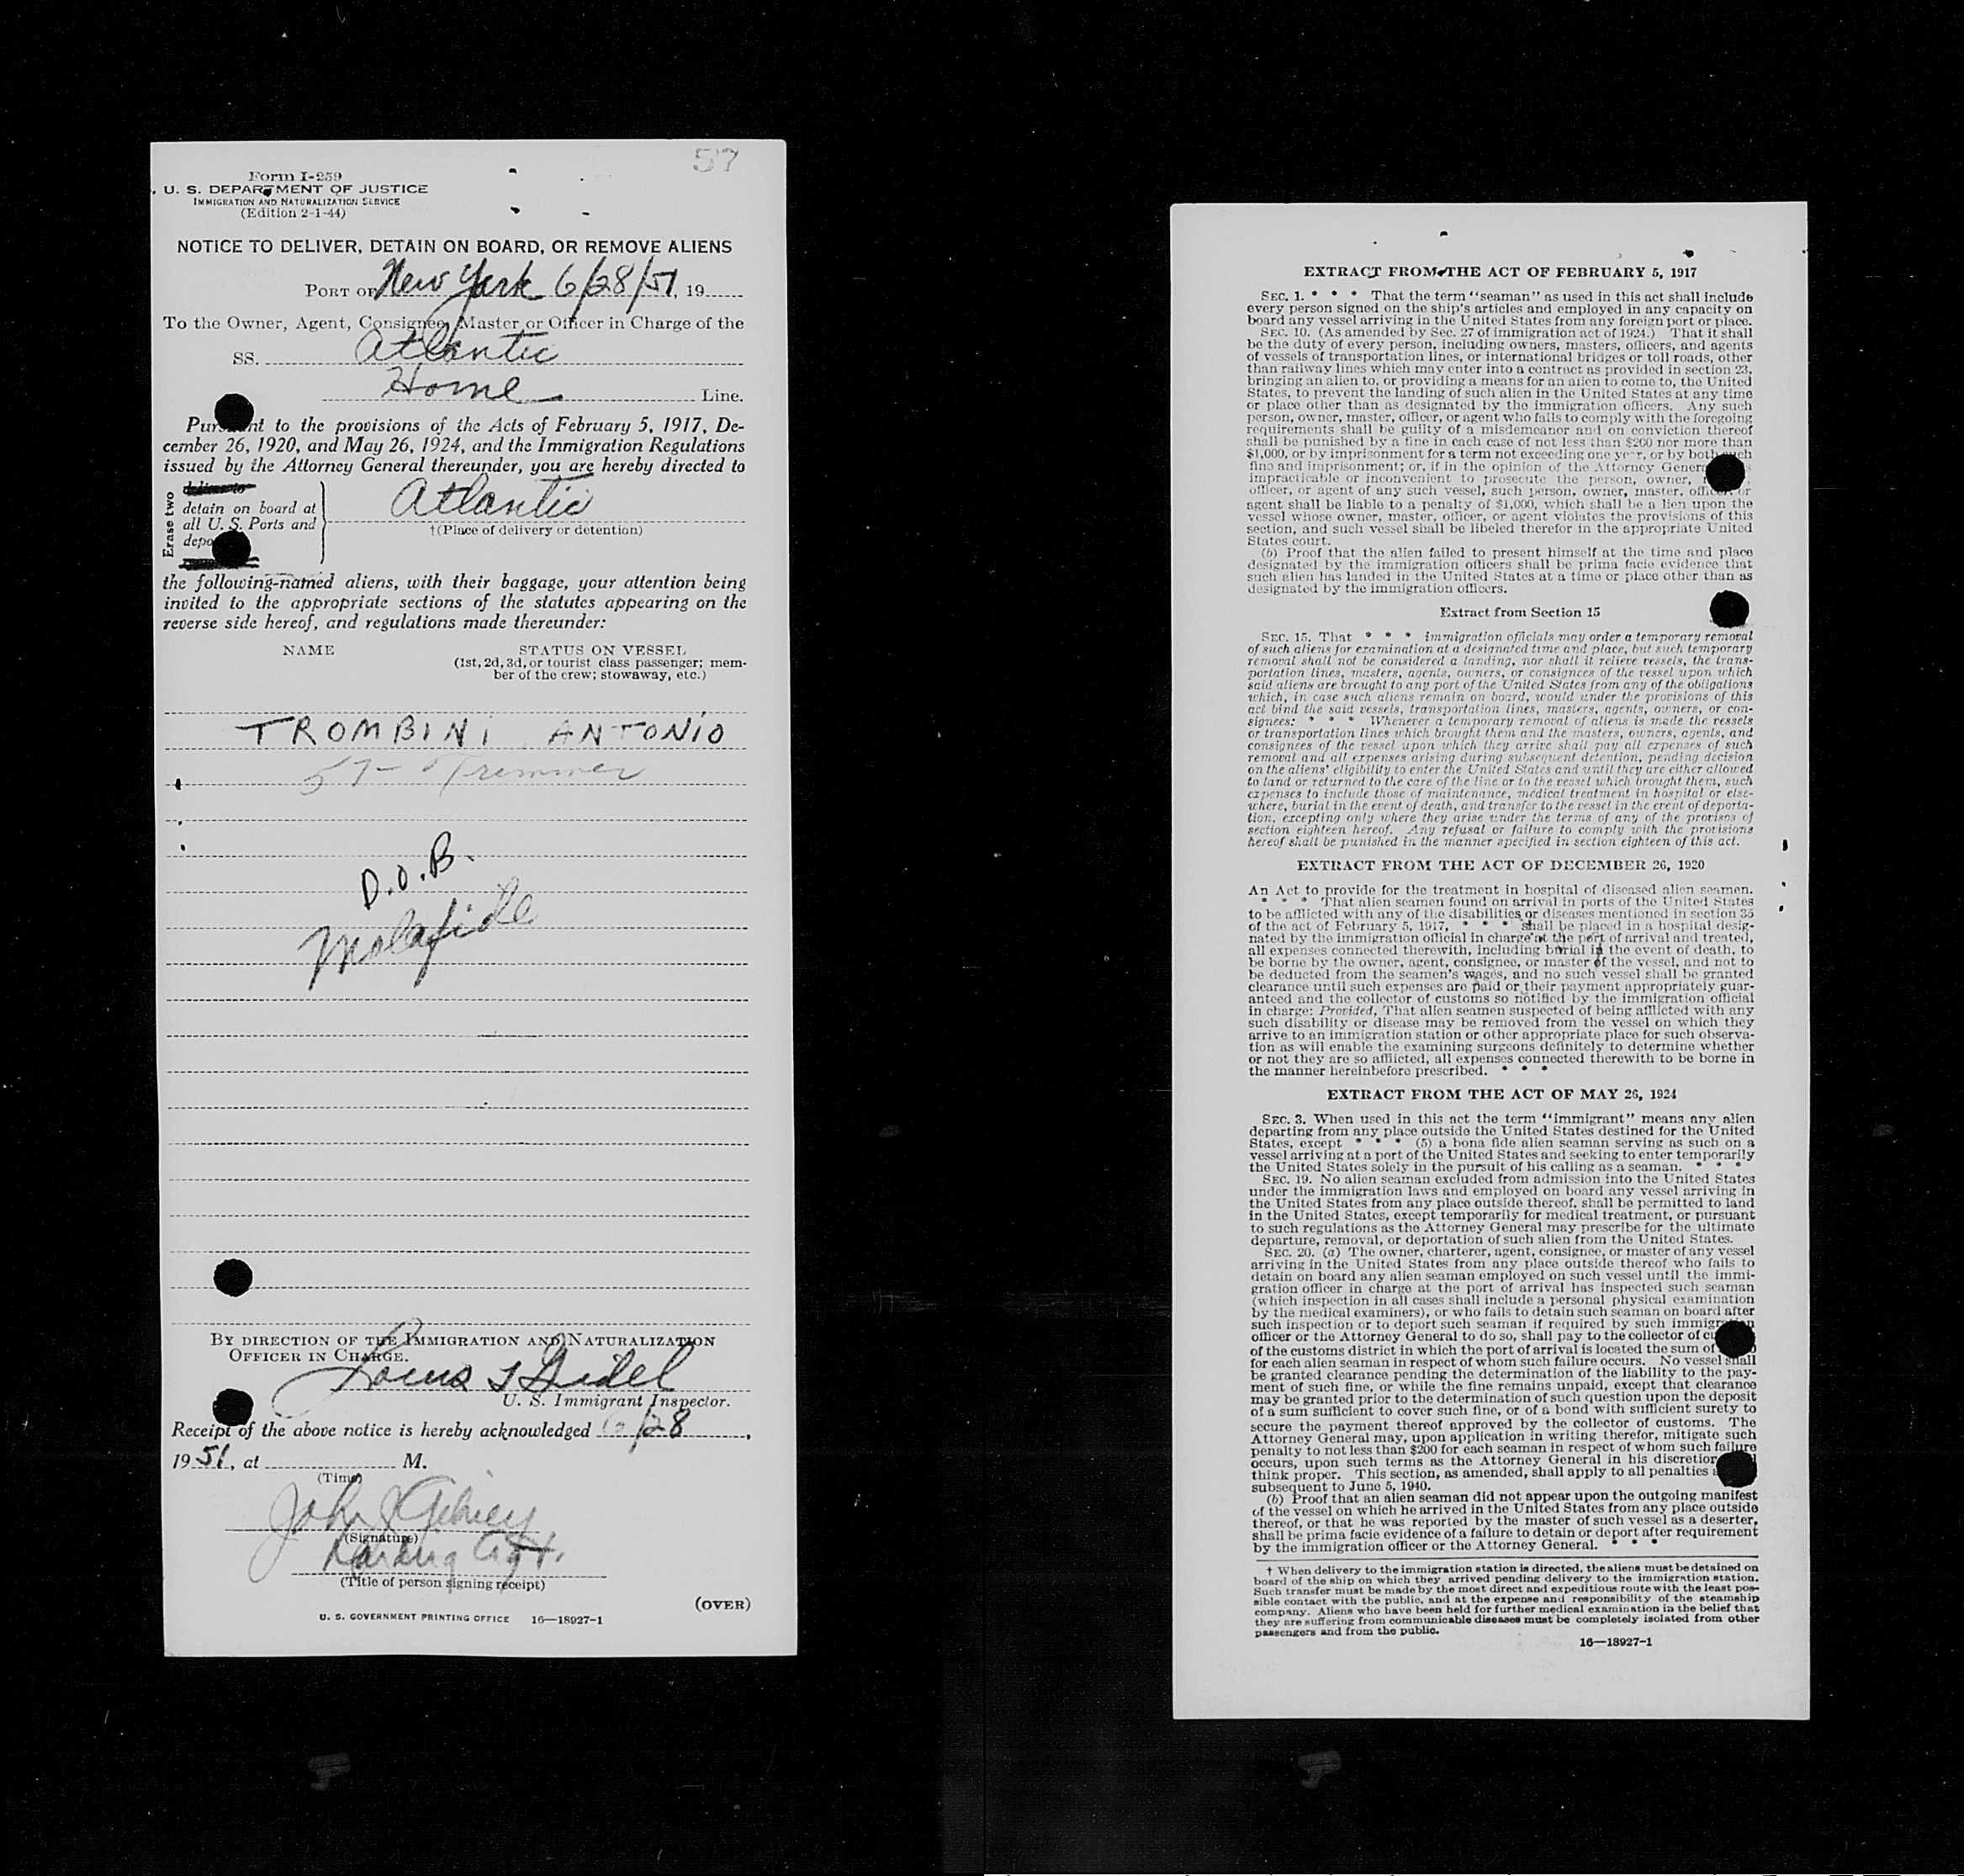 57
Form I-259
U. S. DEPARTMENT OF JUSTICE
IMMIGRATION AND NATURALIZATION SERVICE
(Edition 2-1-44)
NOTICE TO DELIVER, DETAIN ON BOARD, OR REMOVE ALIENS
PORT OF New York 6/28/51, 19
To the Owner, Agent, Consignee, Master or Officer in Charge of the
SS. Atlantic
Home Line.
Pursuant to the provisions of the Acts of February 5, 1917, De-
cember 26, 1920, and May 26, 1924, and the Immigration Regulations
issued by the Attorney General thereunder, you are hereby directed to
Erase two
detain on board at
all U. S. Ports and
Atlantic
†(Place of delivery or detention)
the following-named aliens, with their baggage, your attention being
invited to the appropriate sections of the statutes appearing on the
reverse side hereof, and regulations made thereunder:
NAME STATUS ON VESSEL
(1st, 2d, 3d, or tourist class passenger; mem-
ber of the crew; stowaway, etc.)
TROMBINI ANTONIO
57- Trimmer
D.O.B.
Malafide
BY DIRECTION OF THE IMMIGRATION AND NATURALIZATION
OFFICER IN CHARGE.
Louis
U. S. Immigrant Inspector.
Receipt of the above notice is hereby acknowledged 6/28,
1951, at M.
(Time)
John
(Signature)
(Title of person signing receipt)
(OVER)
U. S. GOVERNMENT PRINTING OFFICE 16—18927-1
EXTRACT FROM THE ACT OF FEBRUARY 5, 1917
SEC. 1. * * * That the term "seaman" as used in this act shall include
every person signed on the ship's articles and employed in any capacity on
board any vessel arriving in the United States from any foreign port or place.
SEC. 10. (As amended by Sec. 27 of immigration act of 1924.) That it shall
be the duty of every person, including owners, masters, officers, and agents
of vessels of transportation lines, or international bridges or toll roads, other
than railway lines which may enter into a contract as provided in section 23,
bringing an alien to, or providing a means for an alien to come to, the United
States, to prevent the landing of such alien in the United States at any time
or place other than as designated by the immigration officers. Any such
person, owner, master, officer, or agent who fails to comply with the foregoing
requirements shall be guilty of a misdemeanor and on conviction thereof
shall be punished by a fine in each case of not less than $200 nor more than
$1,000, or by imprisonment for a term not exceeding one year, or by both such
fine and imprisonment; or, if in the opinion of the Attorney General
impracticable or inconvenient to prosecute the person, owner,
officer, or agent of any such vessel, such person, owner, master, officer, or
agent shall be liable to a penalty of $1,000, which shall be a lien upon the
vessel whose owner, master, officer, or agent violates the provisions of this
section, and such vessel shall be libeled therefor in the appropriate United
States court.
(b) Proof that the alien failed to present himself at the time and place
designated by the immigration officers shall be prima facie evidence that
such alien has landed in the United States at a time or place other than as
designated by the immigration officers.
Extract from Section 15
SEC. 15. That * * * immigration officials may order a temporary removal
of such aliens for examination at a designated time and place, but such temporary
removal shall not be considered a landing, nor shall it relieve vessels, the trans-
portation lines, masters, agents, owners, or consignees of the vessel upon which
said aliens are brought to any port of the United States from any of the obligations
which, in case such aliens remain on board, would under the provisions of this
act bind the said vessels, transportation lines, masters, agents, owners, or con-
signees: * * * Whenever a temporary removal of aliens is made the vessels
or transportation lines which brought them and the masters, owners, agents, and
consignees of the vessel upon which they arrive shall pay all expenses of such
removal and all expenses arising during subsequent detention, pending decision
on the aliens' eligibility to enter the United States and until they are either allowed
to land or returned to the care of the line or to the vessel which brought them, such
expenses to include those of maintenance, medical treatment in hospital or else-
where, burial in the event of death, and transfer to the vessel in the event of deporta-
tion, excepting only where they arise under the terms of any of the provisos of
section eighteen hereof. Any refusal or failure to comply with the provisions
hereof shall be punished in the manner specified in section eighteen of this act.
EXTRACT FROM THE ACT OF DECEMBER 26, 1920
An Act to provide for the treatment in hospital of diseased alien seamen.
* * * That alien seamen found on arrival in ports of the United States
to be afflicted with any of the disabilities or diseases mentioned in section 35
of the act of February 5, 1917, * * * shall be placed in a hospital desig-
nated by the immigration official in charge at the port of arrival and treated,
all expenses connected therewith, including burial in the event of death, to
be borne by the owner, agent, consignee, or master of the vessel, and not to
be deducted from the seamen's wages, and no such vessel shall be granted
clearance until such expenses are paid or their payment appropriately guar-
anteed and the collector of customs so notified by the immigration official
in charge: Provided, That alien seamen suspected of being afflicted with any
such disability or disease may be removed from the vessel on which they
arrive to an immigration station or other appropriate place for such observa-
tion as will enable the examining surgeons definitely to determine whether
or not they are so afflicted, all expenses connected therewith to be borne in
the manner hereinbefore prescribed. * * *
EXTRACT FROM THE ACT OF MAY 26, 1924
SEC. 3. When used in this act the term "immigrant" means any alien
departing from any place outside the United States destined for the United
States, except * * * (5) a bona fide alien seaman serving as such on a
vessel arriving at a port of the United States and seeking to enter temporarily
the United States solely in the pursuit of his calling as a seaman. * * *
SEC. 19. No alien seaman excluded from admission into the United States
under the immigration laws and employed on board any vessel arriving in
the United States from any place outside thereof, shall be permitted to land
in the United States, except temporarily for medical treatment, or pursuant
to such regulations as the Attorney General may prescribe for the ultimate
departure, removal, or deportation of such alien from the United States.
SEC. 20. (a) The owner, charterer, agent, consignee, or master of any vessel
arriving in the United States from any place outside thereof who fails to
detain on board any alien seaman employed on such vessel until the immi-
gration officer in charge at the port of arrival has inspected such seaman
(which inspection in all cases shall include a personal physical examination
by the medical examiners), or who fails to detain such seaman on board after
such inspection or to deport such seaman if required by such immigration
officer or the Attorney General to do so, shall pay to the collector of
of the customs district in which the port of arrival is located the sum of
for each alien seaman in respect of whom such failure occurs. No vessel shall
be granted clearance pending the determination of the liability to the pay-
ment of such fine, or while the fine remains unpaid, except that clearance
may be granted prior to the determination of such question upon the deposit
of a sum sufficient to cover such fine, or of a bond with sufficient surety to
secure the payment thereof approved by the collector of customs. The
Attorney General may, upon application in writing therefor, mitigate such
penalty to not less than $200 for each seaman in respect of whom such failure
occurs, upon such terms as the Attorney General in his discretion
think proper. This section, as amended, shall apply to all penalties
subsequent to June 5, 1940.
(b) Proof that an alien seaman did not appear upon the outgoing manifest
of the vessel on which he arrived in the United States from any place outside
thereof, or that he was reported by the master of such vessel as a deserter,
shall be prima facie evidence of a failure to detain or deport after requirement
by the immigration officer or the Attorney General. * * *
† When delivery to the immigration station is directed, the aliens must be detained on
board of the ship on which they arrived pending delivery to the immigration station.
Such transfer must be made by the most direct and expeditious route with the least pos-
sible contact with the public, and at the expense and responsibility of the steamship
company. Aliens who have been held for further medical examination in the belief that
they are suffering from communicable diseases must be completely isolated from other
passengers and from the public.
16—18927-1